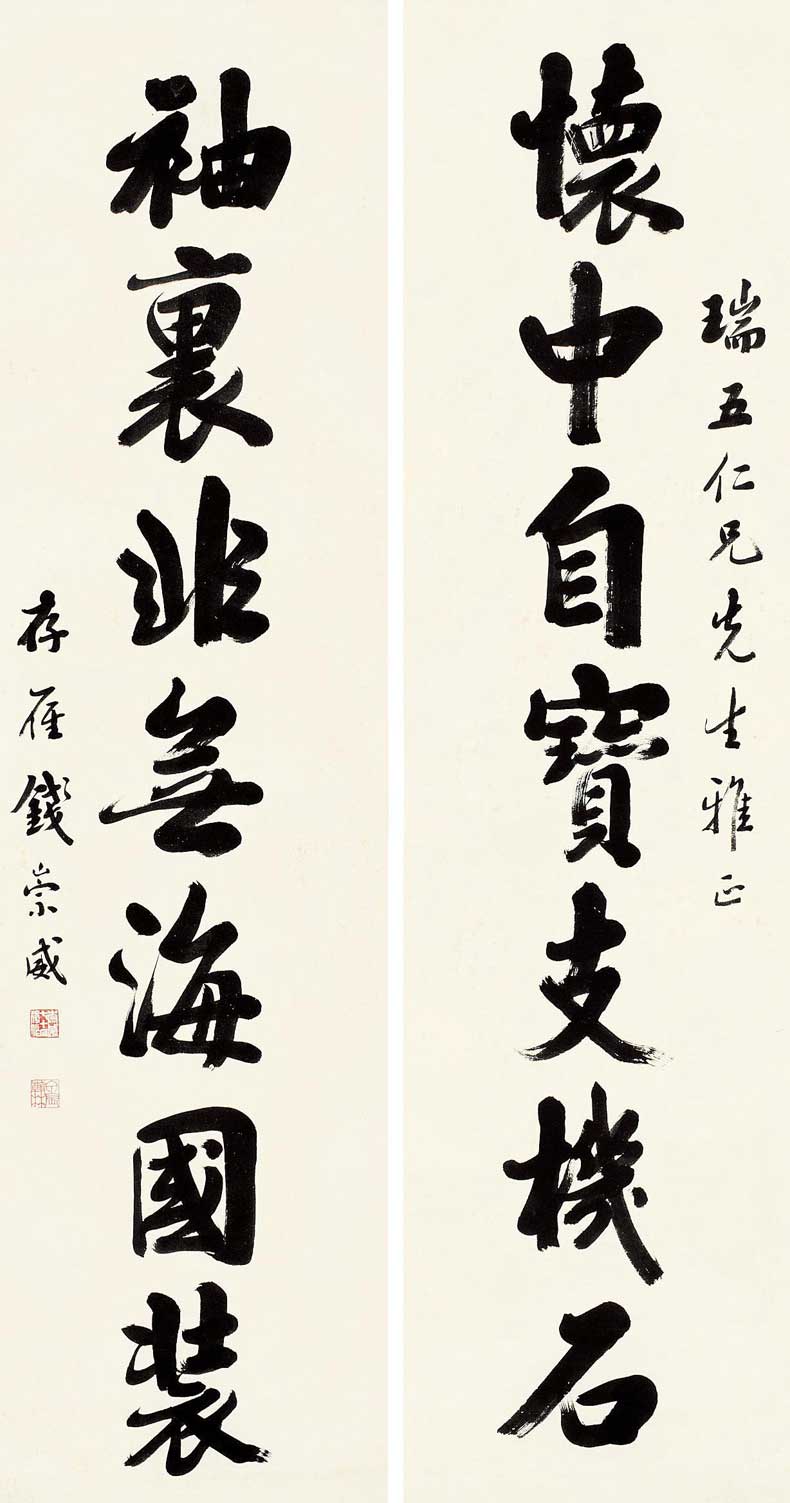 瑞五仁兄先生雅正
懷中自寶支機石
袖裏非無海國裝
存雁錢崇威